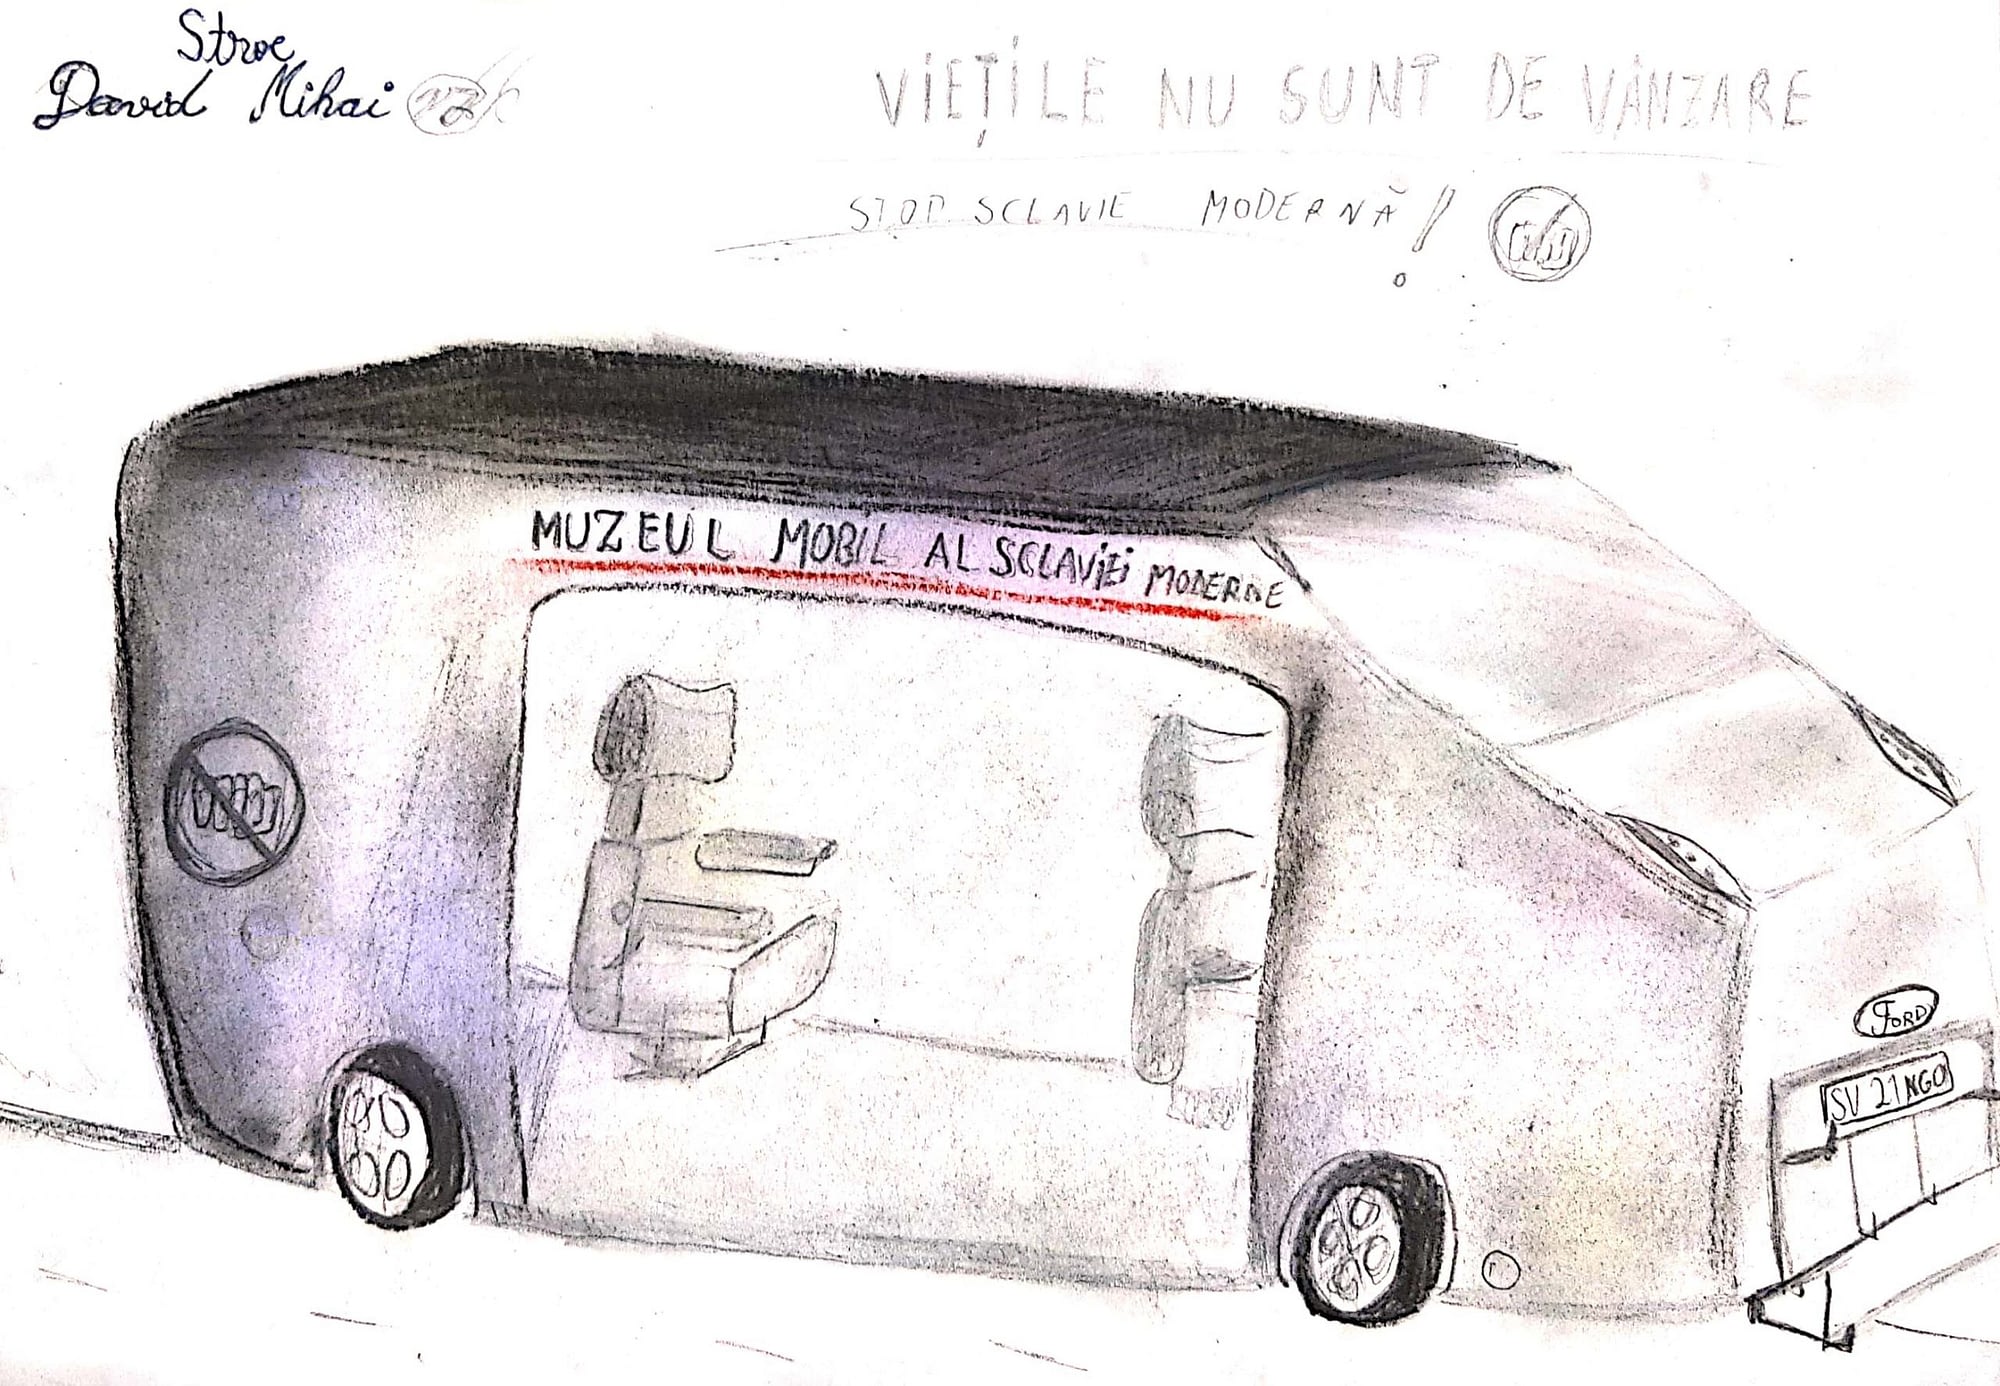 Stroe
David Mihai
VIEȚILE NU SUNT DE VÂNZARE
STOP SCLAVIE MODERNĂ!
MUZEUL MOBIL AL SCLAVIEI MODERNE
FORD
SV 21 NGO